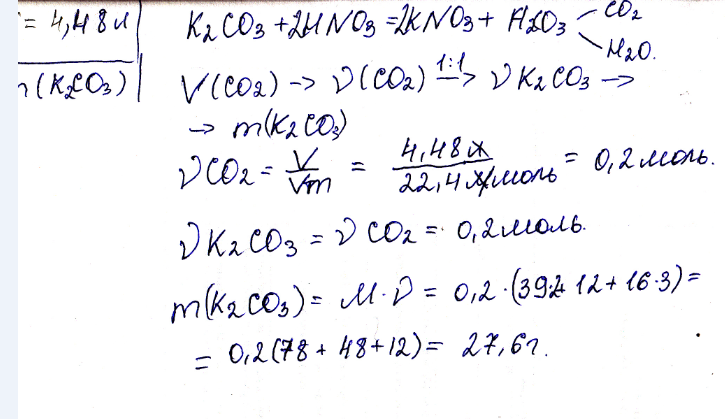 = 4,48л
(K2CO3)
K2CO3 + 2HNO3 = 2KNO3 + H2CO3 CO2
H2O.
V(CO2) → ν(CO2) 1:1→ ν K2CO3 →
→ m(K2CO3)
ν CO2 = V/Vm = 4,48 л/22,4 л/моль = 0,2 моль.
ν K2CO3 = ν CO2 = 0,2 моль.
m(K2CO3) = M·ν = 0,2·(39·2+12+16·3) =
= 0,2(78+48+12) = 27,6 г.